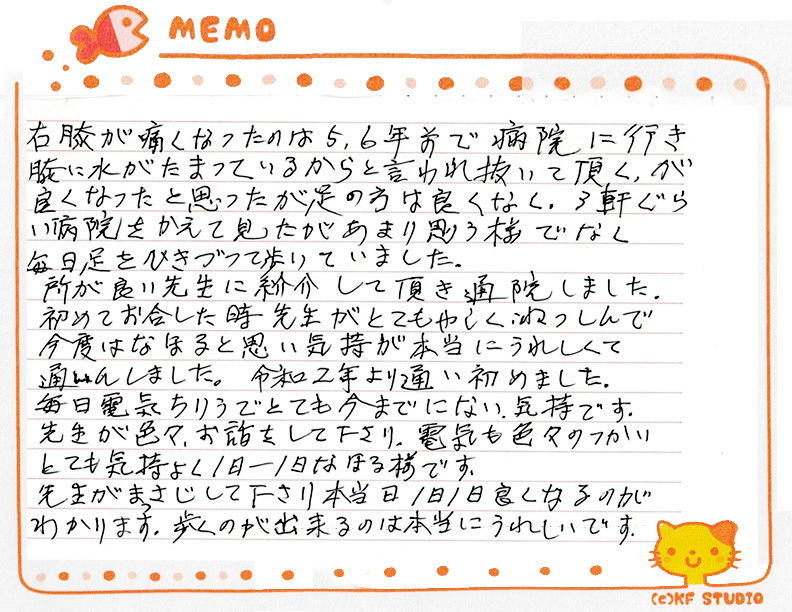 MEMO
右膝が痛くなったのは5,6年前で病院に行き
膝に水がたまっているからと言われ抜いて頂く,が
良くなったと思ったが足の方は良くなく.3軒ぐら
い病院をかえて見たがあまり思う様でなく
毎日足をひきづって歩いていました。
所が良い先生に紹介して頂き通院しました.
初めてお合した時先生がとてもやさしくねっしんで
今度はなほると思い気持が本当にうれしくて
通いんしました。令和2年より通い初めました.
毎日電気ちりうでとても今までにない気持です.
先生が色々,お話をして下さり.電気も色々のつかい
とても気持よく1日一1日なほる様です.
先生がまっさじして下さり本当日1日1日良くなるのが
わかります.歩くのが出来るのは本当にうれしいです.
(c)KF STUDIO